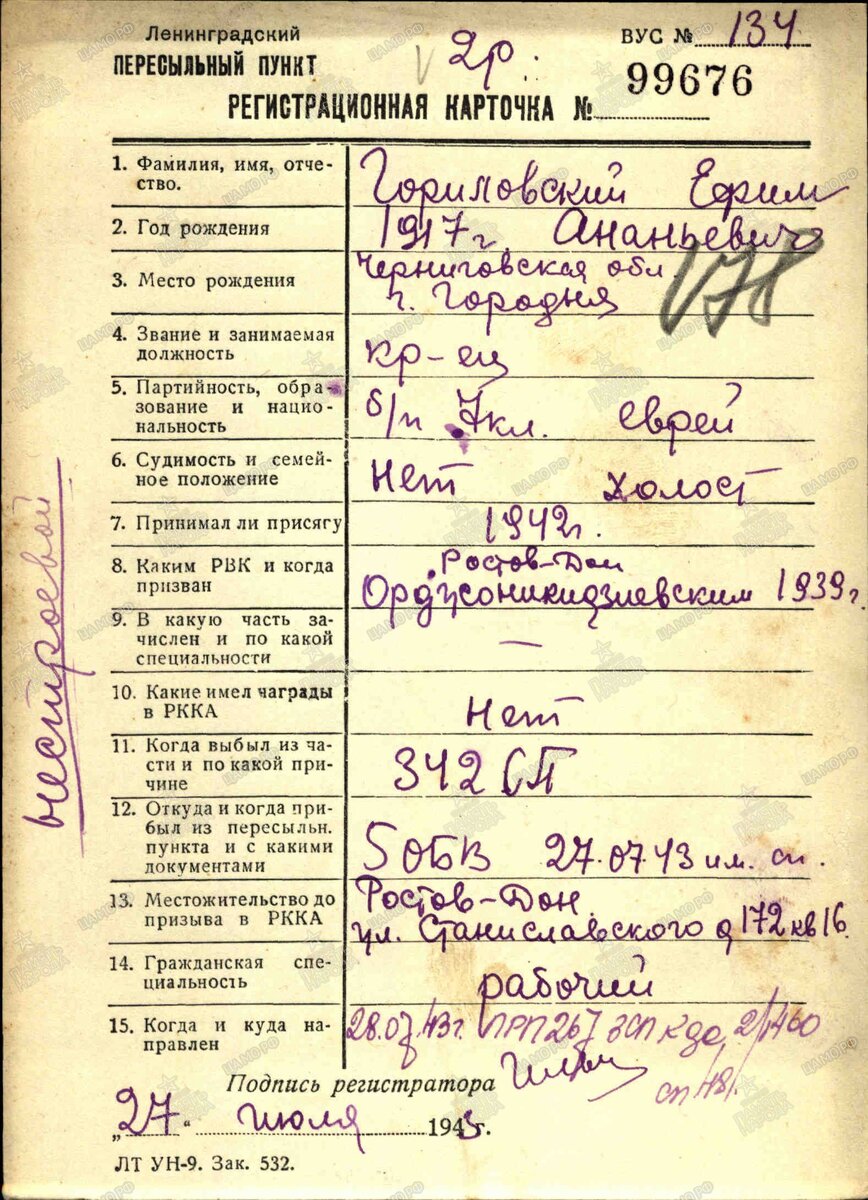 Ленинградский
ПЕРЕСЫЛЬНЫЙ ПУНКТ
2р.
ВУС № 134
99676
РЕГИСТРАЦИОННАЯ КАРТОЧКА №
1. Фамилия, имя, отче-
ство.
Гориловский Ефим
2. Год рождения
1917 г. Ананьевич
3. Место рождения
Черниговская обл.
г. Городня
V78
4. Звание и занимаемая
должность
кр-ец
5. Партийность, обра-
зование и нацио-
нальность
б/п 7кл. еврей
6. Судимость и семей-
ное положение
Нет холост
7. Принимал ли присягу
1942г.
8. Каким РВК и когда
призван
Ростов-Дон
Орджоникидзиевским 1939г
9. В какую часть за-
числен и по какой
специальности
—
10. Какие имел награды
в РККА
Нет
11. Когда выбыл из ча-
сти и по какой при-
чине
342 СП
12. Откуда и когда при-
был из пересыльн.
пункта и с какими
документами
5 ОБВ 27.07.43 им. сп.
13. Местожительство до
призыва в РККА
Ростов-Дон
ул. Станиславского д 172 кв 16.
14. Гражданская спе-
циальность
рабочий
15. Когда и куда на-
правлен
28.07.43г. ПРП 267 ЗСП к-да 2/1460
сп/48/.
Подпись регистратора
„27“ июля 1943г.
ЛТ УН-9. Зак. 532.
нестроевой